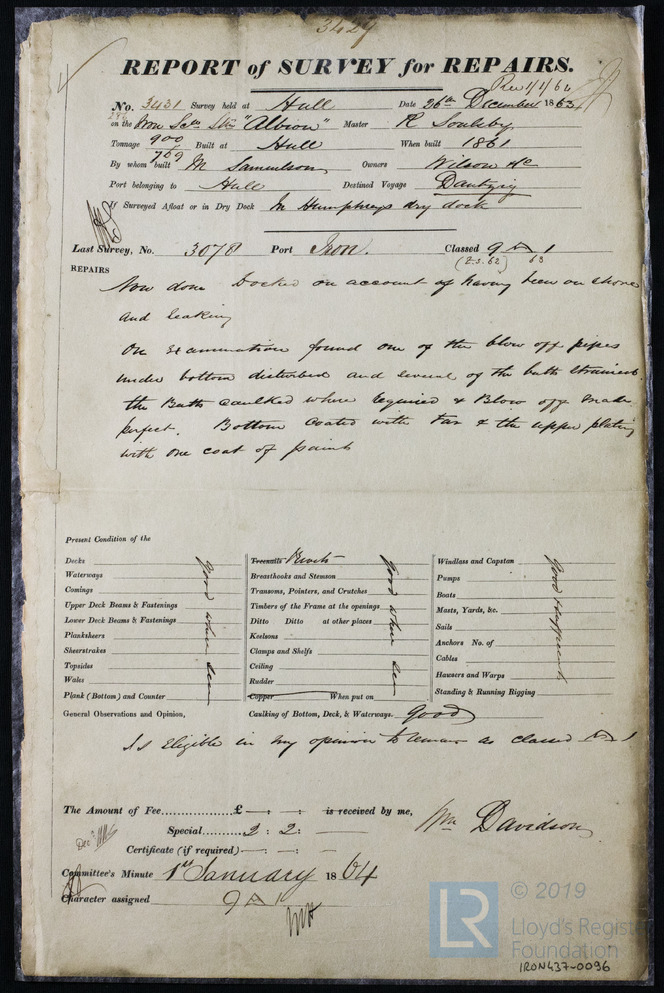 3429
REPORT of SURVEY for REPAIRS.
No. 3431 Survey held at Hull Date 26th December 1863
on the Iron Scw Str "Albion" Master R Soulsby
Tonnage 900 Built at Hull When built 1861
769
By whom built M Samuelson Owners Wilson &c
Port belonging to Hull Destined Voyage Dantzig
If Surveyed Afloat or in Dry Dock In Humphreys dry dock
Last Survey, No. 3078 Port Iron. Classed 9 A 1
(2.s. 62) 63
REPAIRS
Now done Docked on account of having been on shore
and leaking
On Examination found one of the blow off pipes
under bottom disturbed and several of the butts strained
the Butts caulked where required & Blow off made
perfect. Bottom coated with tar & the upper plating
with one coat of paint
Present Condition of the
Decks
Waterways
Comings
Upper Deck Beams & Fastenings
Lower Deck Beams & Fastenings
Planksheers
Sheerstrakes
Topsides
Wales
Plank (Bottom) and Counter
good where seen
Treenails Rivets
Breasthooks and Stemson
Transoms, Pointers, and Crutches
Timbers of the Frame at the openings
Ditto Ditto at other places
Keelsons
Clamps and Shelfs
Ceiling
Rudder
Copper When put on
good where seen
Windlass and Capstan
Pumps
Boats
Masts, Yards, &c.
Sails
Anchors No. of
Cables
Hawsers and Warps
Standing & Running Rigging
Good
General Observations and Opinion,
Caulking of Bottom, Deck, & Waterways. good
Is Eligible in my opinion to remain as classed A 1
The Amount of Fee............£ — : — : is received by me,
Special.........2 : 2 : —
Wm Davidson
Certificate (if required) — : — :
Committee's Minute 1st January 1864
Character assigned 9 A 1
LR
© 2019
Lloyd's Register
Foundation
IRON437-0096